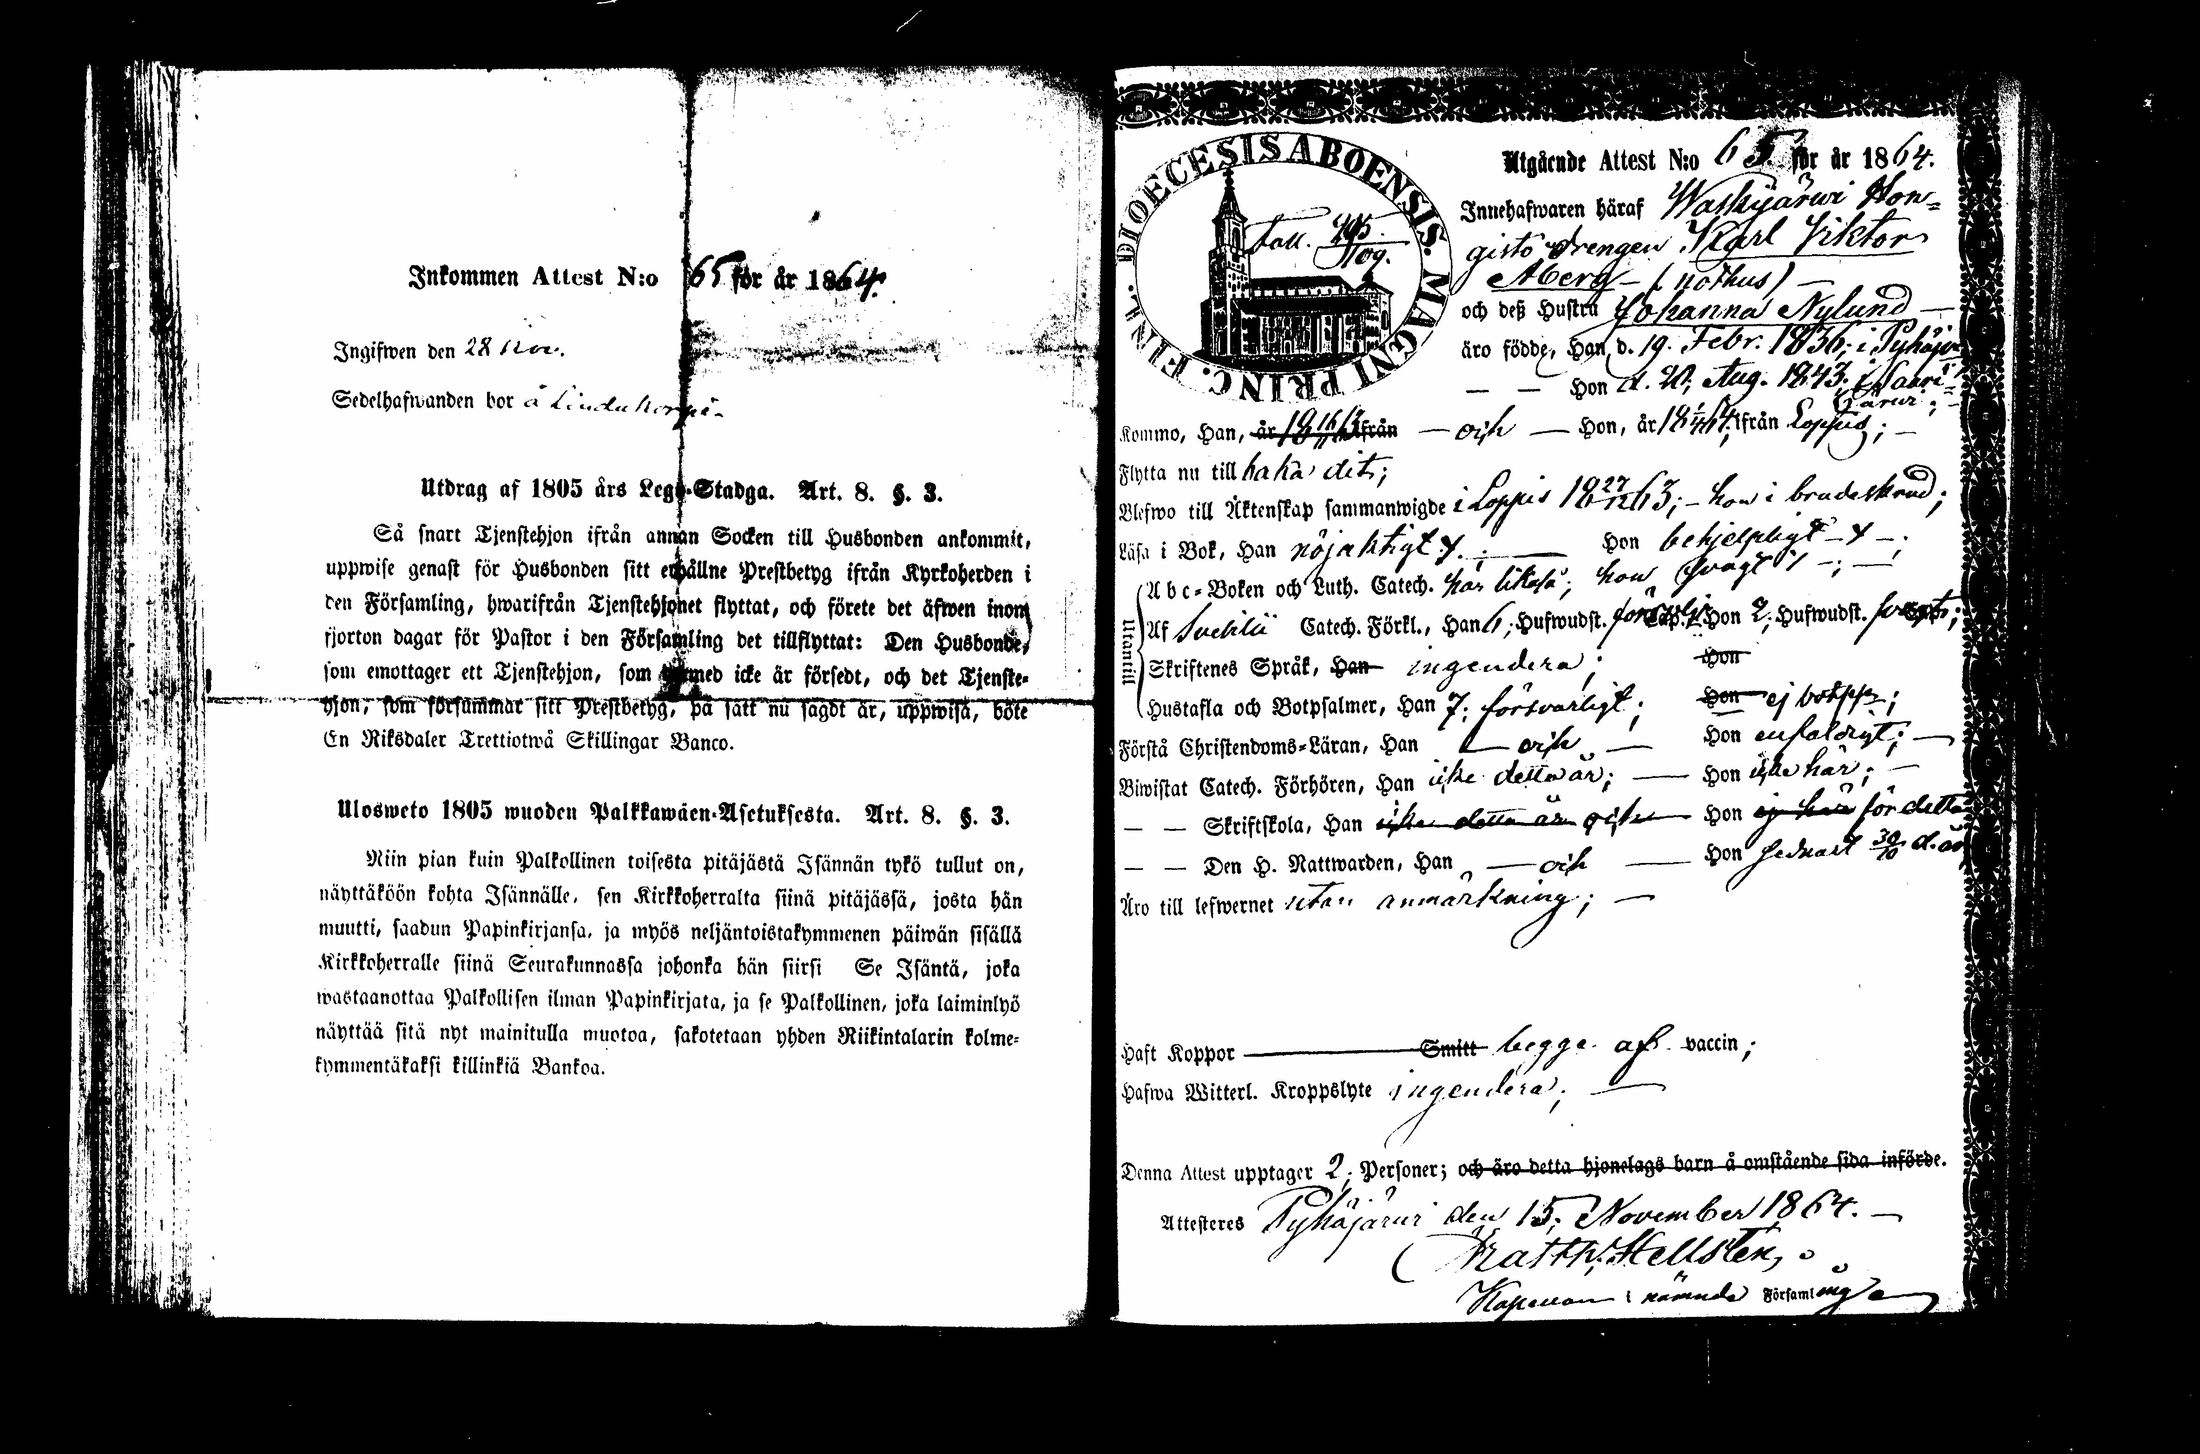 Inkommen Attest N:o 65 för år 1864.
Ingifwen den 28 Nov.
Sedelhafwanden bor å
Utdrag af 1805 års Lego-Stadga. Art. 8. §. 3.
Så snart Tjenstehjon ifrån annan Socken till Husbonden ankommit,
uppwise genast för Husbonden sitt erhållne Prestbetyg ifrån Kyrkoherden i
den Församling, hwarifrån Tjenstehjonet flyttat, och förete det äfwen inom
fjorton dagar för Pastor i den Församling det tillflyttat: Den Husbonde,
som emottager ett Tjenstehjon, som dermed icke är försedt, och det Tjenste-
hjon, som försummar sitt Prestbetyg, på sätt nu sagdt är, uppwisa, böte
En Riksdaler Trettiotwå Skillingar Banco.
Ulosweto 1805 wuoden Palkkawäen-Asetuksesta. Art. 8. §. 3.
Niin pian kuin Palkollinen toisesta pitäjästä Isännän tykö tullut on,
näyttäköön kohta Isännälle, sen Kirkkoherralta siinä pitäjässä, josta hän
muutti, saadun Papinkirjansa, ja myös neljäntoistakymmenen päiwän sisällä
Kirkkoherralle siinä Seurakunnassa johonka hän siirsi Se Isäntä, joka
wastaanottaa Palkollisen ilman Papinkirjata, ja se Palkollinen, joka laiminlyö
näyttää sitä nyt mainitulla muotoa, sakotetaan yhden Riikintalarin kolme-
kymmentäkaksi killinkiä Bankoa.
DIOECESIS ABOENSIS. MAGNI PRINC. FINL.
Utgående Attest N:o 65 för år 1864.
Innehafwaren häraf Waskijärwi Hon-
gisto drengen Karl Viktor
Åberg - (nothus) -
och deß Hustru Johanna Nylund -
äro födde, Han d. 19. Febr. 1836; i Pyhäjerwi
— — Hon d. 20; Aug. 1843; i Saari-
järwi; -
Kommo, Han, år 18 16/11 63 ifrån — och — Hon, år 18 1/4 64; ifrån Loppis; -
Flytta nu till baka dit;
Blefwo till Äktenskap sammanwigde i Loppis 18 27/12 63; - hon i brudeskrud;
Läsa i Bok, Han nöjaktigt +. ; — Hon behjelpligt - + - ;
Utantill
Abc-Boken och Luth. Catech. har likaså; hon svagt - ; - ;
Af Svebilii Catech. Förkl., Han 6; Hufwudst. Cap. Hon 2; Hufwudst. svagt;
Skriftenes Språk, Han ingendera; Hon
Hustafla och Botpsalmer, Han 7; försvarligt; Hon ej botpss;
Förstå Christendoms-Läran, Han — och — Hon enfaldigt; —
Biwistat Catech. Förhören, Han icke detta år; — Hon icke här; -
— — Skriftskola, Han icke detta år och — Hon ej här för detta
— — Den H. Nattwarden, Han — och — Hon sednast 30/10 d. år
Äro till lefwernet utan anmärkning; -
Haft Koppor — Smitt begge af vaccin;
Hafwa Witterl. Kroppslyte ingendera; —
Denna Attest upptager 2; Personer; och äro detta hjonelags barn å omstående sida införde.
Attesteres Pyhäjärwi den 15; November 1864. -
Matth. Hellstén,
Kapellan i nämnde Församling